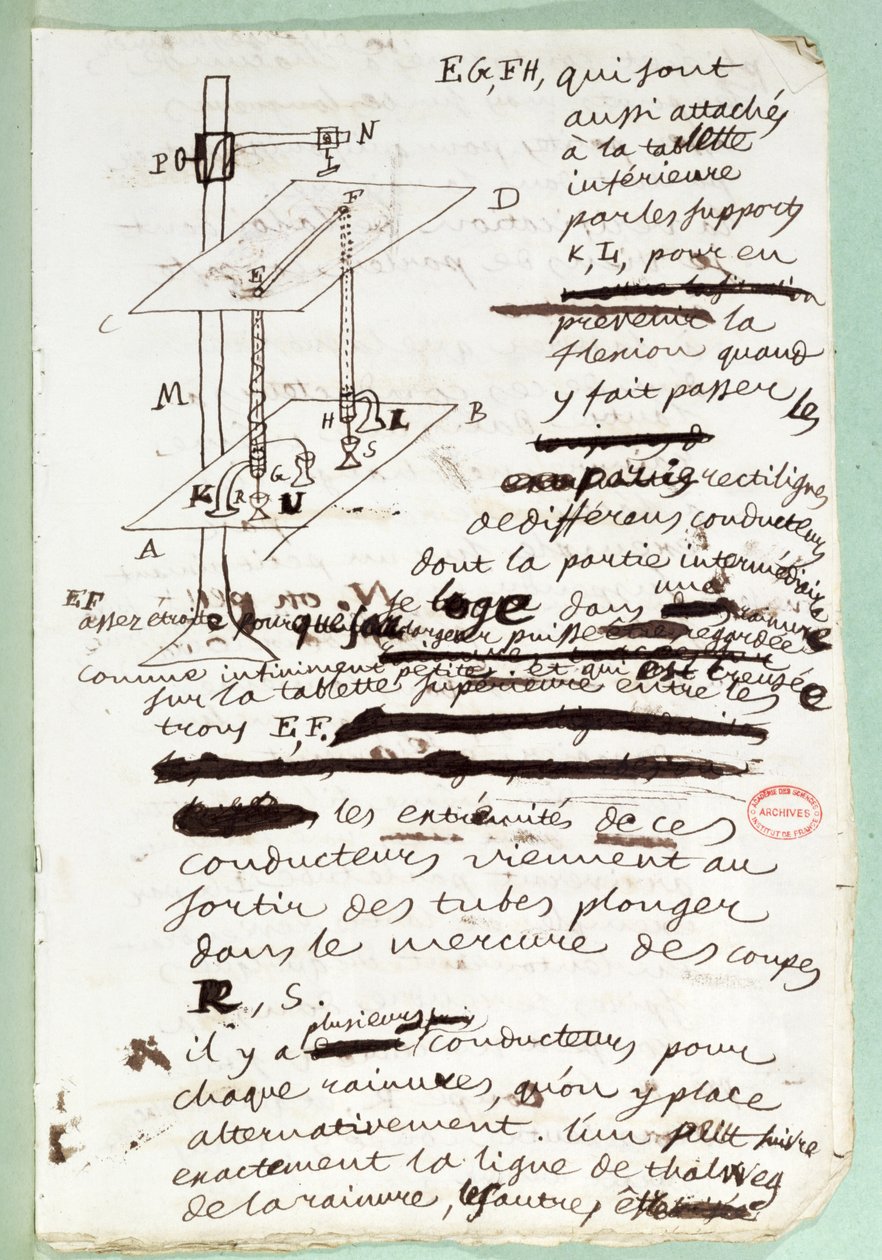 P
N
I
D
F
E
C
M
B
H
L
S
G
K
R
U
A
EG, FH, qui sont
aussi attachés
à la tablette
inférieure
par les supports
K, L, pour en
prévenir la
flexion quand
y fait passer les
parties rectilignes
de différens conducteurs
dont la partie intermédiaire
se loge dans une rainure
EF
assez étroite pour que sa largeur puisse être regardée
comme infiniment petite, et qui est creusée
sur la tablette supérieure entre les
trous E, F.
les extrémités de ces
conducteurs viennent au
sortir des tubes plonger
dans le mercure des coupes
R, S.
il y a plusieurs conducteurs pour
chaque rainures, qu'on y place
alternativement. l'un peut suivre
exactement la ligne de thalweg
de la rainure, les autres
ACADÉMIE DES SCIENCES
ARCHIVES
INSTITUT DE FRANCE